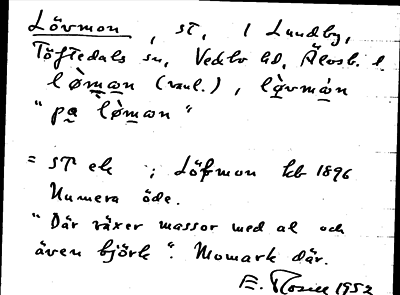 Lövmon, st, i Lundby,
Töftedals sn, Vedbo hd, Älvsb. l.
lò̱ma̱n (vanl.), lò̱vmȧ̱n
"pa̱ lò̱ma̱n"
= st ek ; Löfmon kb 1896
Numera öde.
"Där växer massor med al och
även björk". Momark där.
E. Rosell 1952